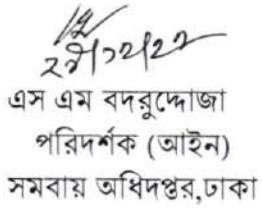 এস এম বদরুদ্দোজা
পরিদর্শক (আইন)
সমবায় অধিদপ্তর,ঢাকা